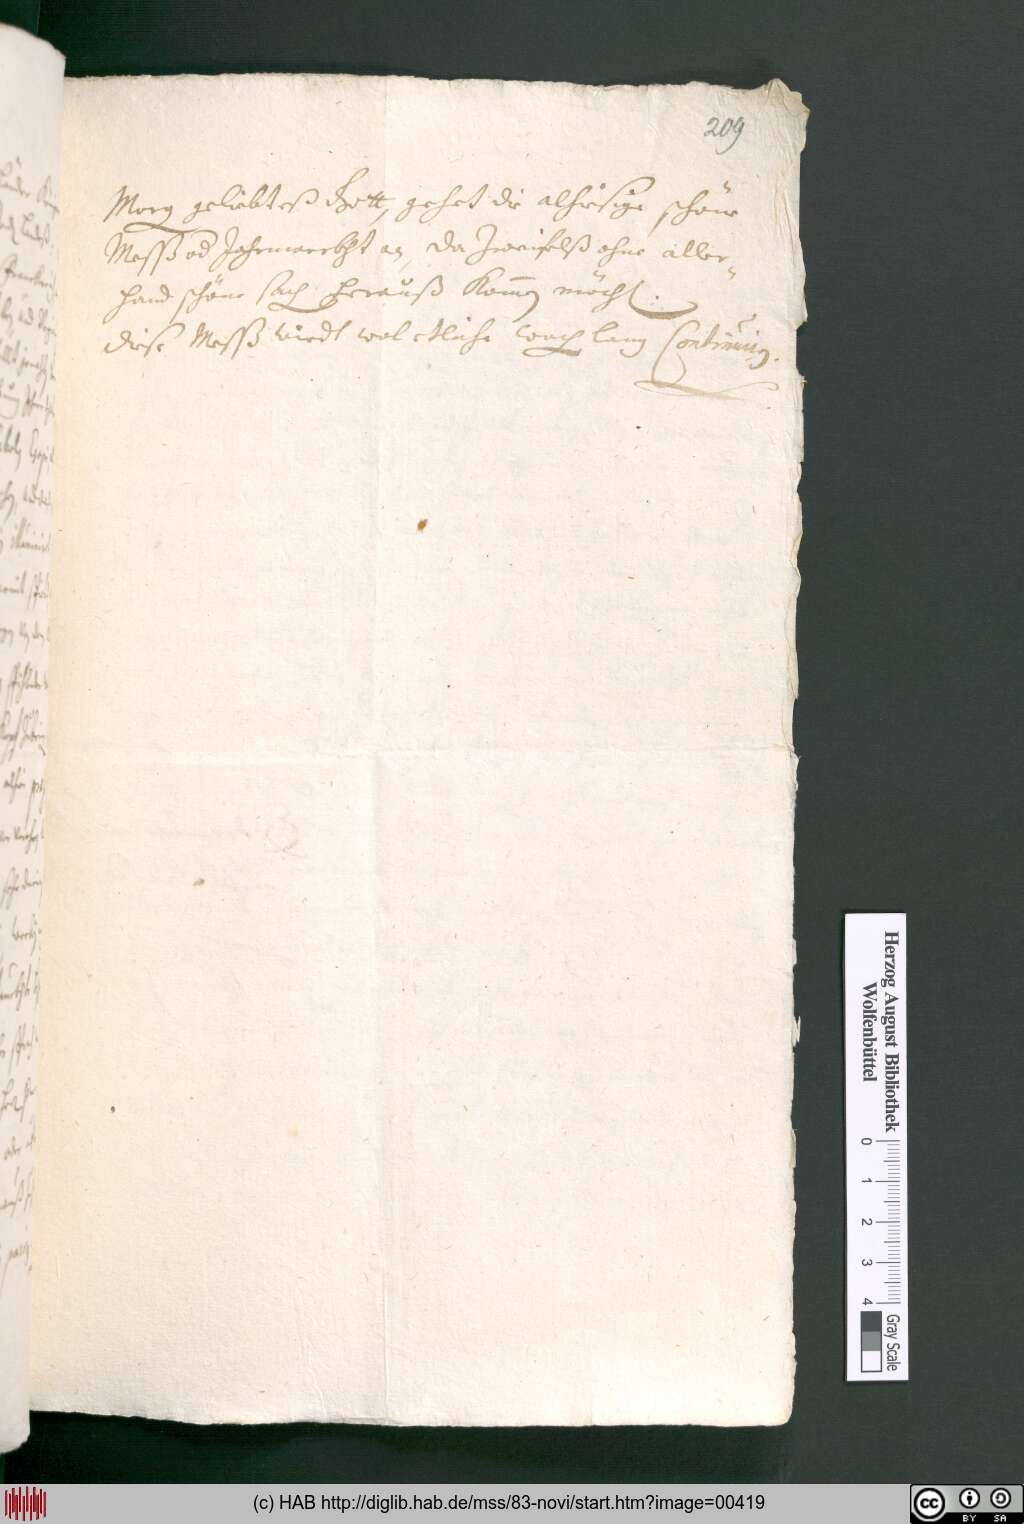 209
Morg geliebteß Gott, gehet die alhiesige schöne
Messß od Jahrmarckht an, da Zweifelß ohne aller-
hand schöne sach herauß kom̄en möcht.
diese Messß wirdt wol etliche woch lang Continuirn.
Herzog August Bibliothek
Wolfenbüttel
0 1 2 3 4
Gray Scale
(c) HAB http://diglib.hab.de/mss/83-novi/start.htm?image=00419
cc BY SA